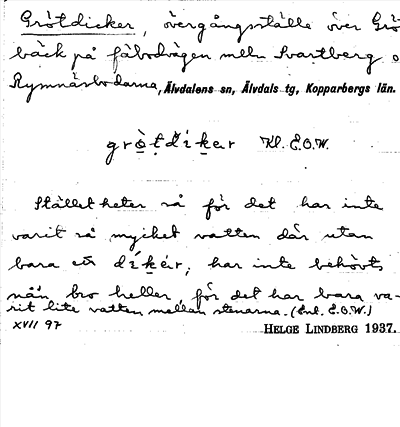 Grötdicker, övergångsställe över Gröt
bäck på fäbodvägen melln Svartberg o
Rymnäsbodarna, Älvdalens sn, Älvdals tg, Kopparbergs län.
grò̱ṭdíḵer Kl. E.O.W.
Stället heter så för det har inte
varit så mycket vatten där utan
bara ett díḵér, har inte behövts
nån bro heller, för det har bara va-
rit lite vatten mellan stenarna. (Enl. E.O.W.)
XVII 97 HELGE LINDBERG 1937.